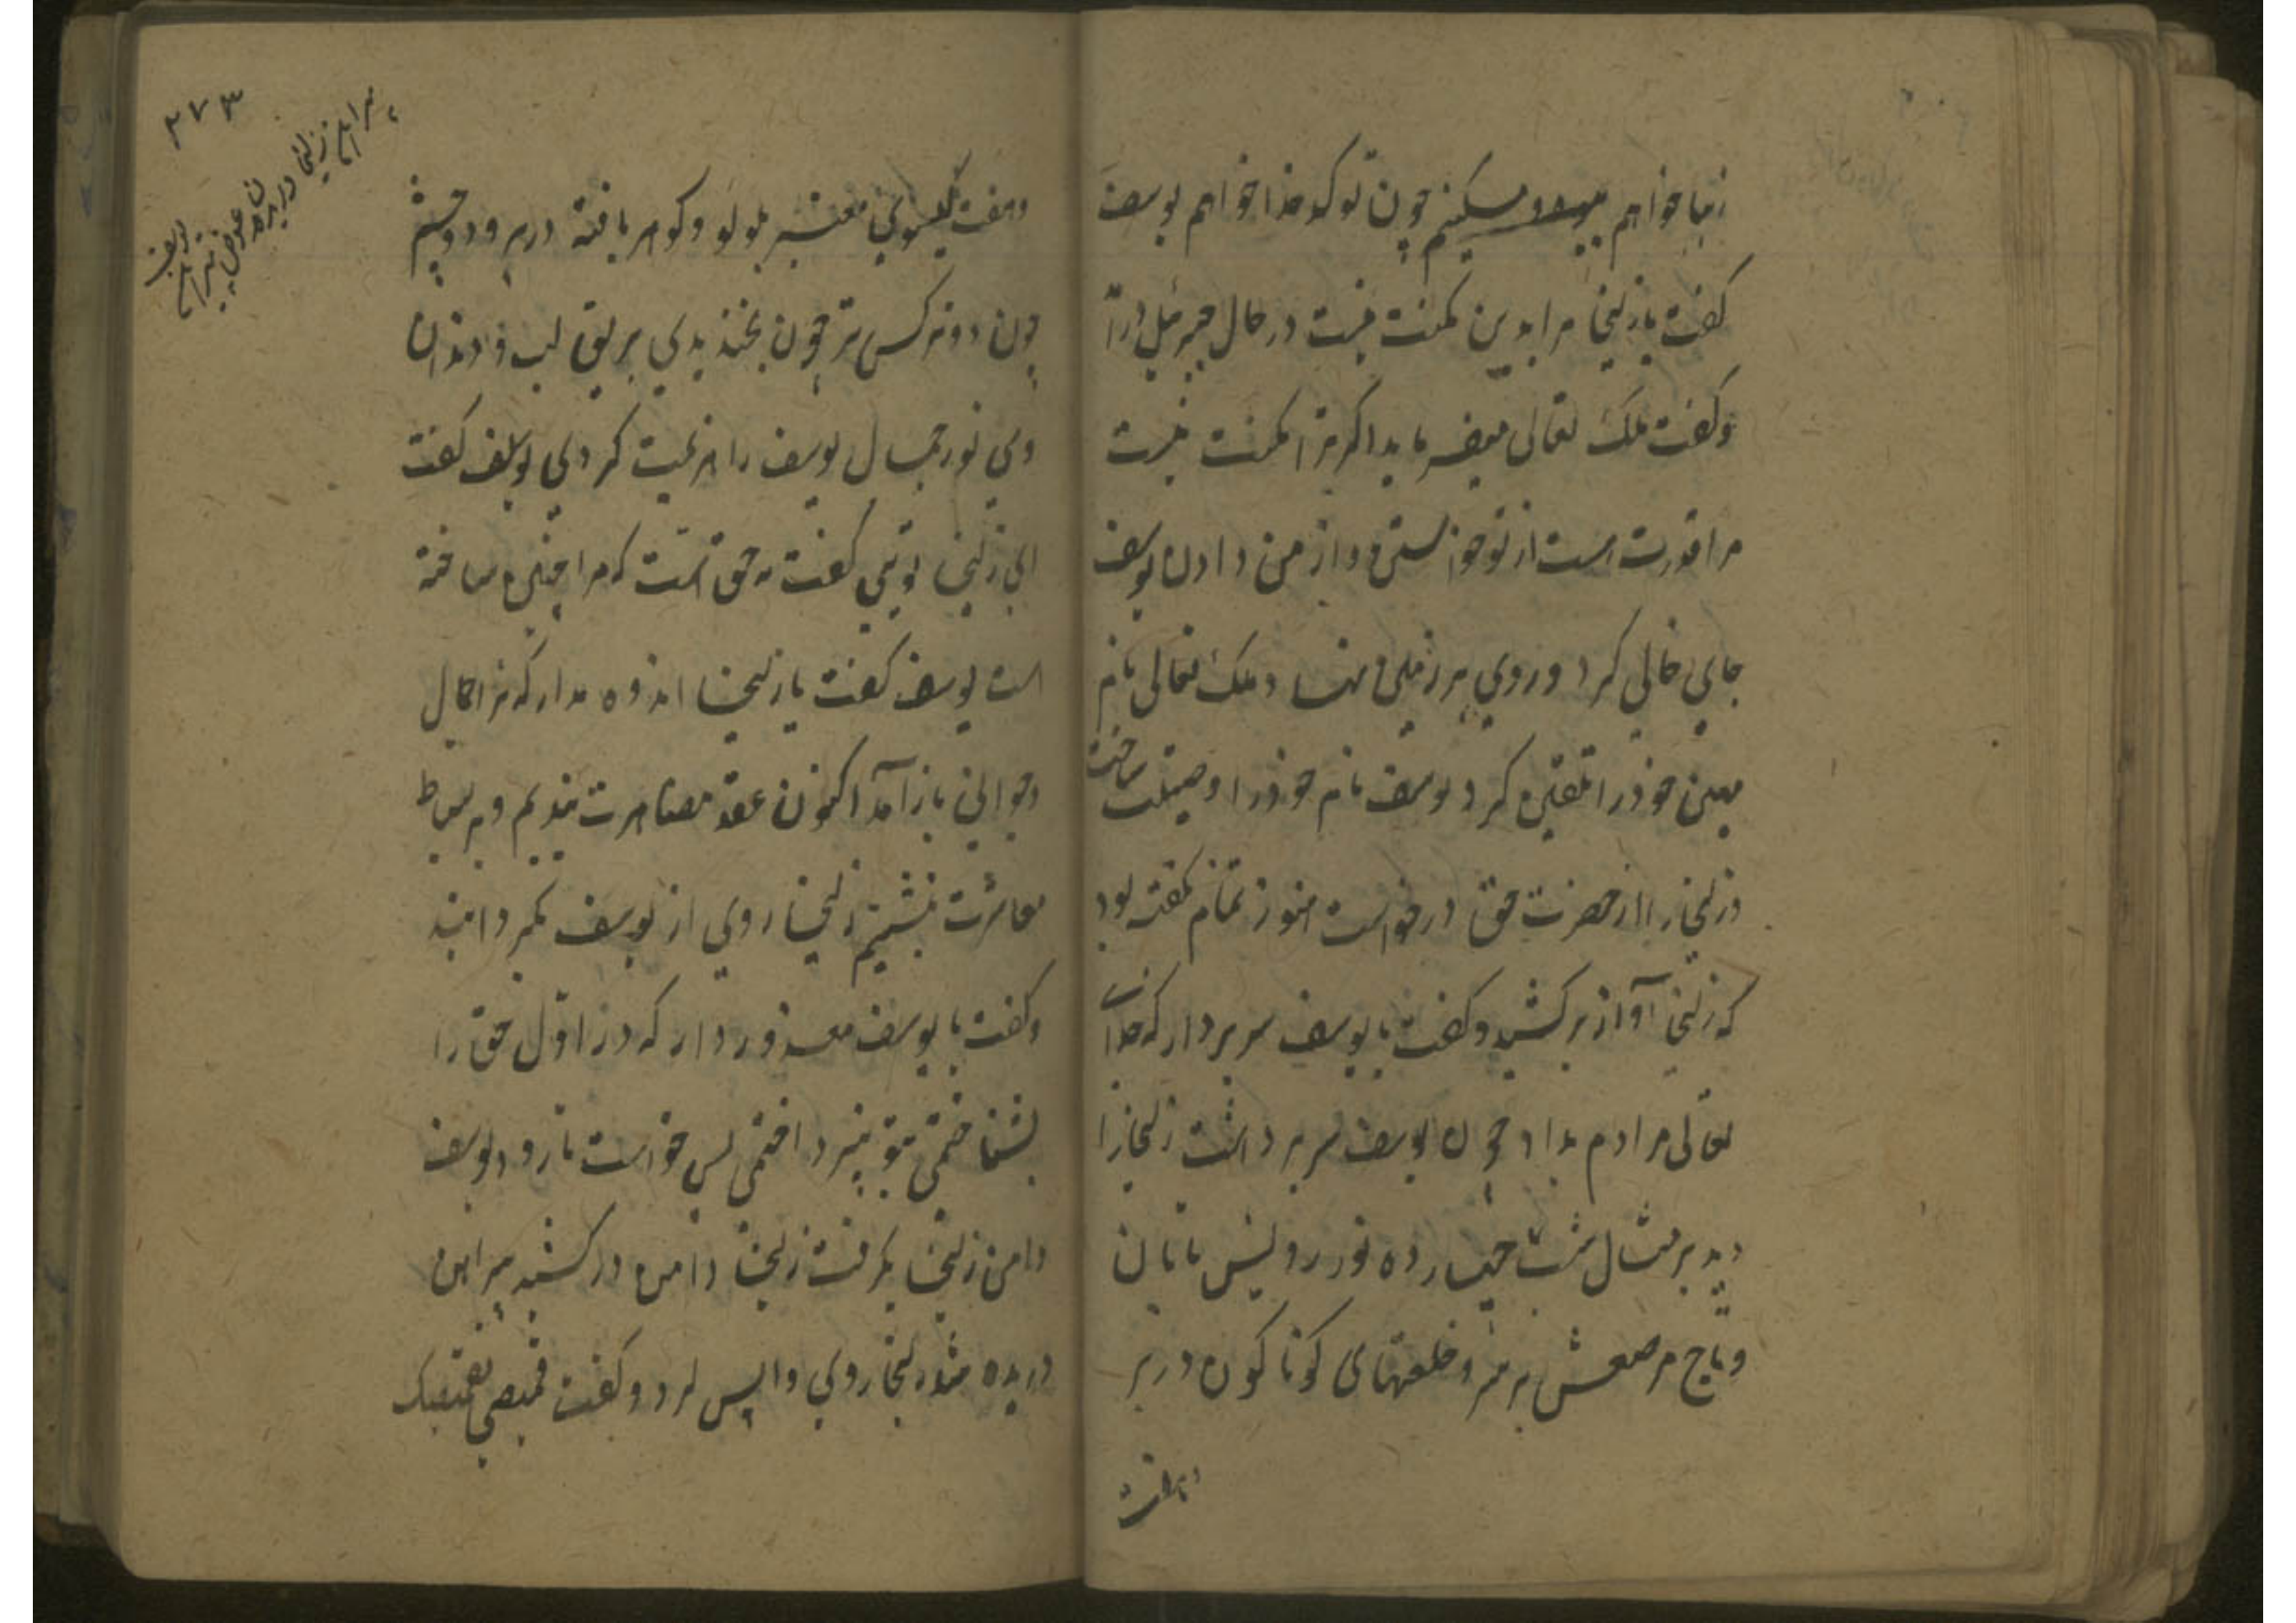 زیبا خواهم چون تو کدخدا خواهم یوسف
کفت یا زلیخا مرا بدین مکنت نیست در حال جبرئیل درآ
و کفت ملک تعالی میفرماید اکر ترا مکنت نیست
مرا قدرت هست از تو خواستن و از من دادن یوسف
جای خالی کرد و روی بر زمین نهاد ملک تعالی نام
مهین خود را تلقین کرد یوسف نام خود را وسیلت ساخت
و زلیخا را از حضرت حق درخواست هنوز تمام نکفته بود
که زلیخا آواز برکشید و کفت یا یوسف سر بردار که خدای
تعالی مرادم بداد چون یوسف سر برداشت زلیخا را
دید بر مثال شب چهارده نور رویش تابان
و تاج مرصعش بر سر و خلعتهای کوناکون در بر
و هفت
۲۷۳
پیراهن زلیخا دریدن عوض پیراهن یوسف
و هفت کیسوی معنبر بلولو و کوهر بافته در بر و دو چشم
چون دو نرکس تر چون بخندیدی بریق لب و دندان
وی نور جمال یوسف را هزیمت کردی یوسف کفت
ای زلیخا تویی کفت نه حق است که مرا چنین ساخته
است یوسف کفت یا زلیخا اندوه مدار که ترا جمال
و جوانی باز آمد اکنون عقد مصاهرت بندیم و بر بساط
معاشرت بنشینیم زلیخا روی از یوسف بکردانید
و کفت یا یوسف معذور دار که در اول حق را
نشناختمی بتو میپرداختمی پس خواست تا رود یوسف
دامن زلیخا بکرفت زلیخا دامن درکشید پیراهن
دریده شد زلیخا روی واپس کرد و کفت قمیصی بقمیصک